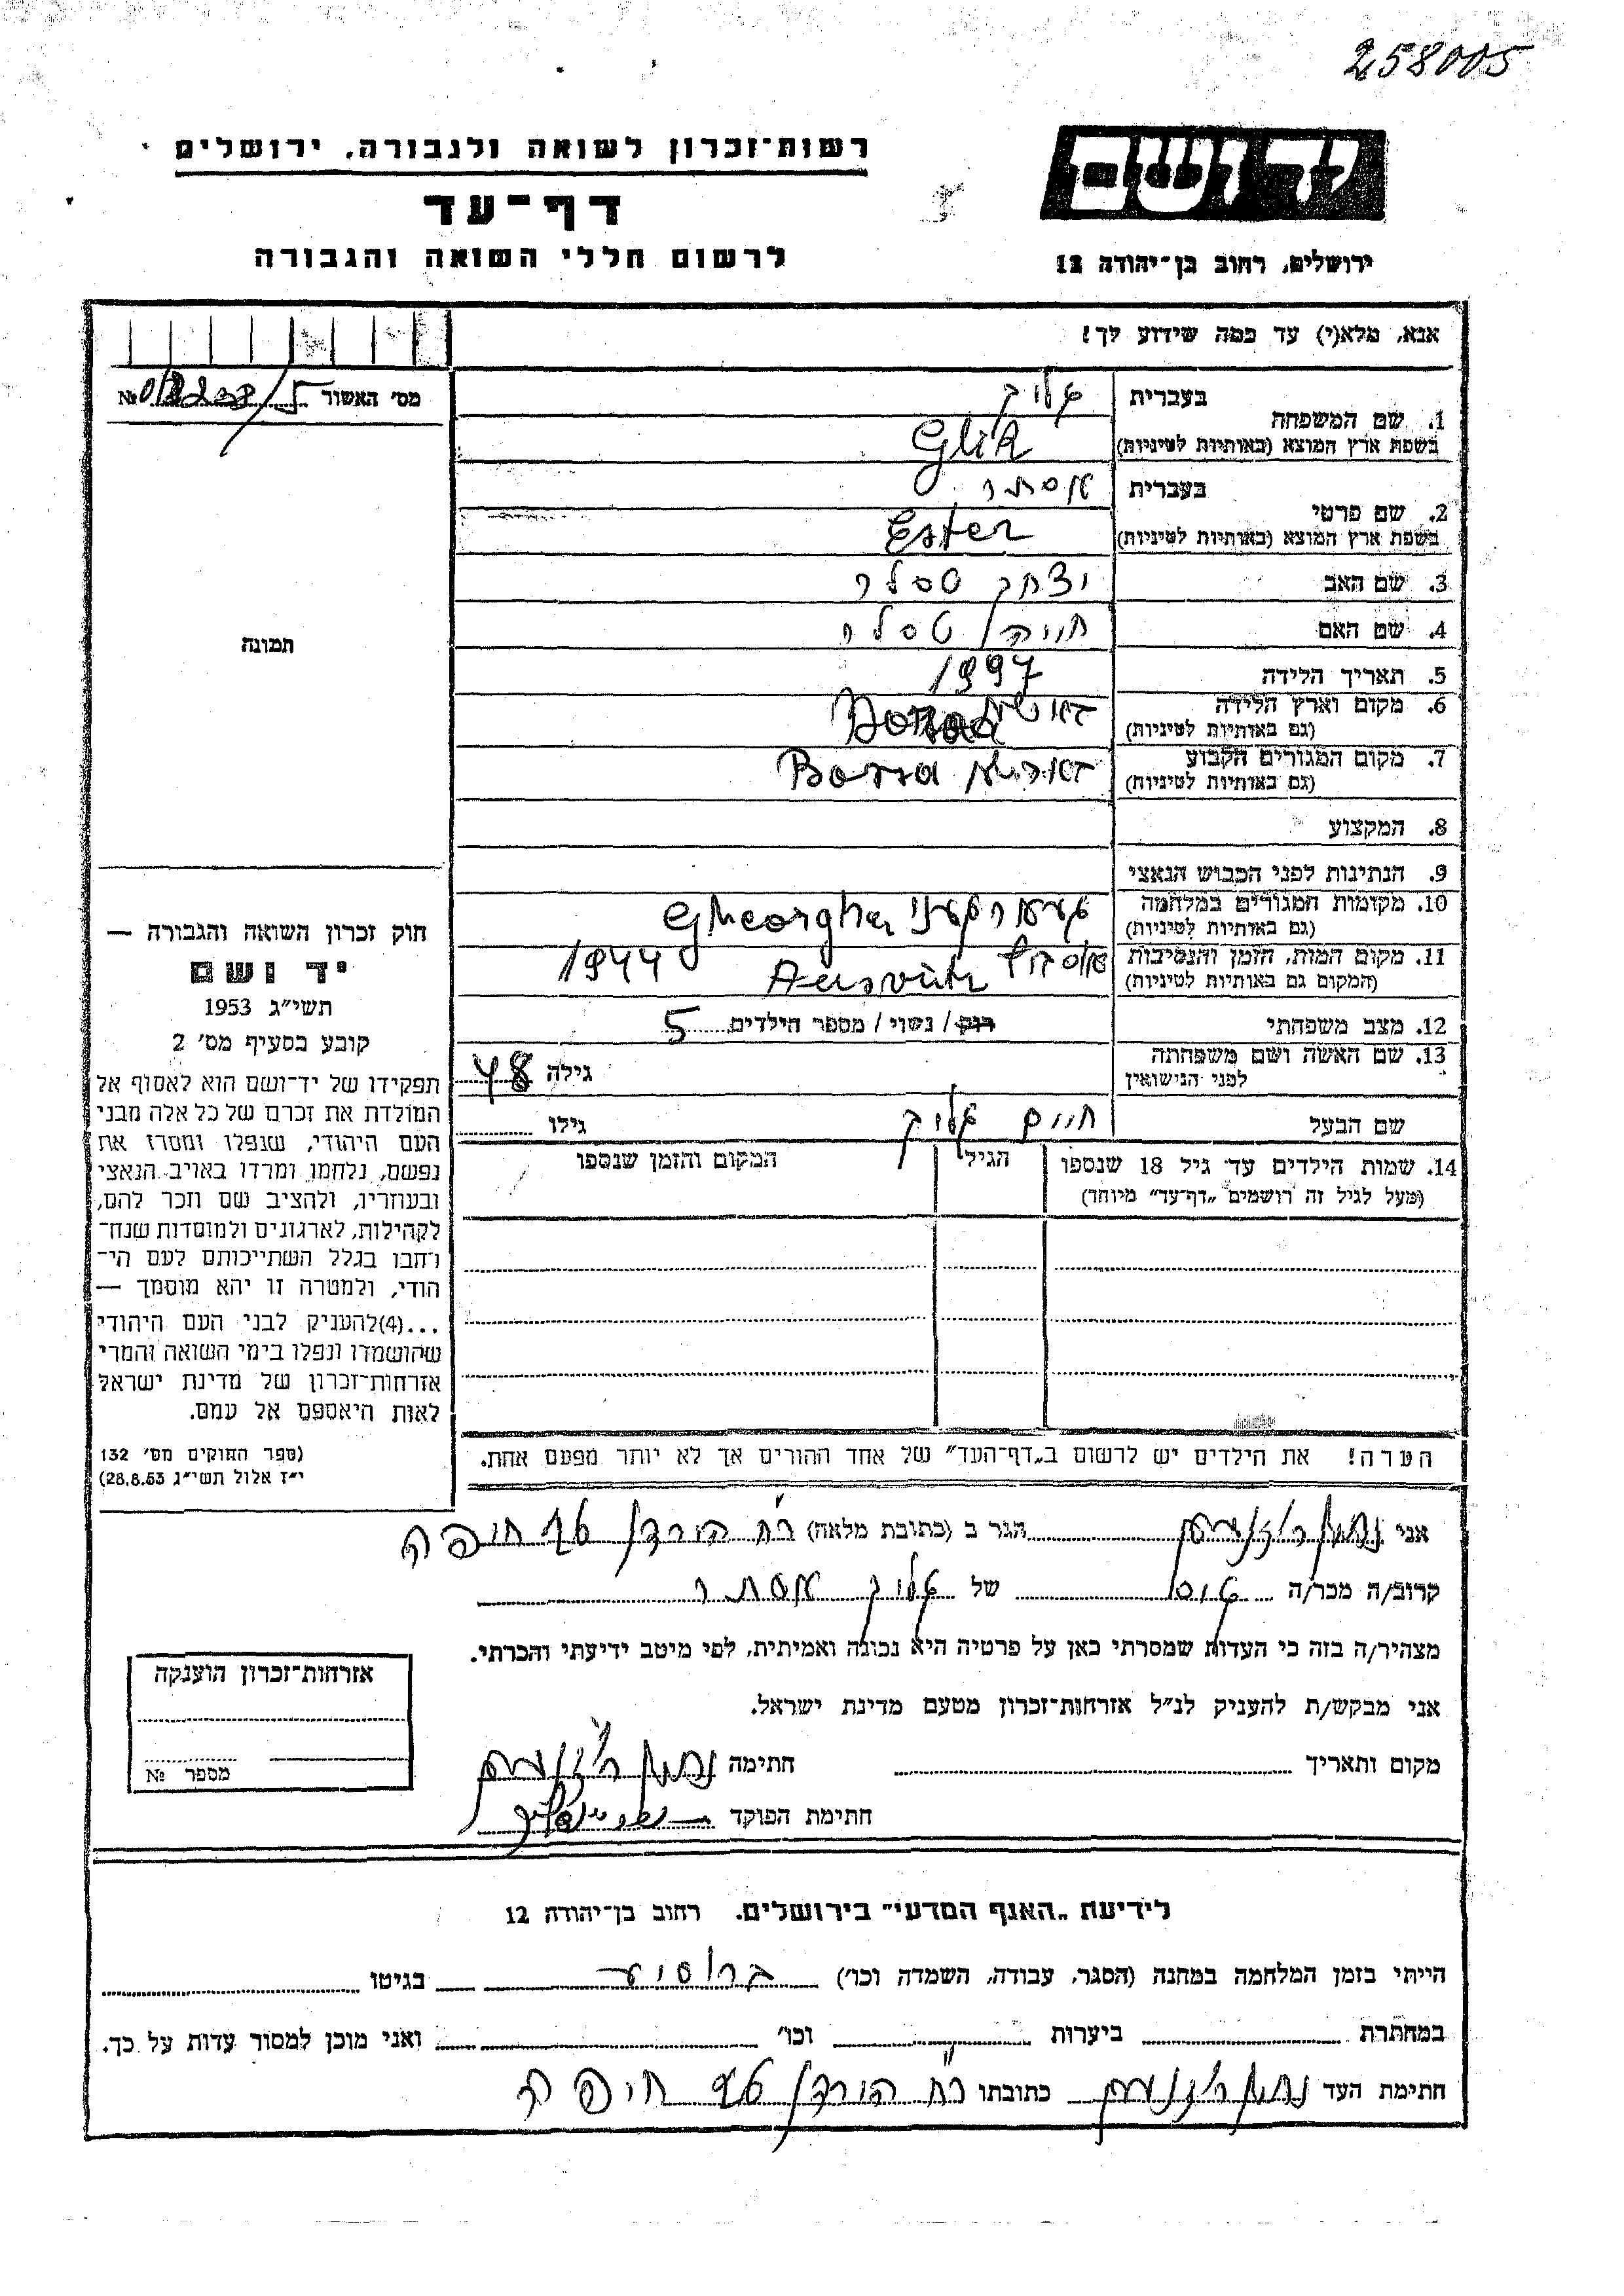 258005
יד ושם
רשות־זכרון לשואה ולגבורה, ירושלים
דף־עד
לרשום חללי השואה והגבורה
ירושלים, רחוב בן־יהודה 12
אנא, מלא(י) עד כמה שידוע לך!
מס' האשור №
1. שם המשפחה
בעברית גליק
בשפת ארץ המוצא (באותיות לטיניות) Glik
2. שם פרטי
בעברית אסתר
בשפת ארץ המוצא (באותיות לטיניות) Ester
3. שם האב יצחק טסלר
4. שם האם חויה טסלר
5. תאריך הלידה 1997
6. מקום וארץ הלידה
(גם באותיות לטיניות)
7. מקום המגורים הקבוע
(גם באותיות לטיניות) Borsa
8. המקצוע
9. הנתינות לפני הכבוש הנאצי
10. מקומות המגורים במלחמה
(גם באותיות לטיניות) Gheorgha
11. מקום המות, הזמן והנסיבות 1944
(המקום גם באותיות לטיניות)
12. מצב משפחתי רוק / נשוי / מספר הילדים 5
13. שם האשה ושם משפחתה
לפני הנישואין גילה 48
שם הבעל חיים גליק גילו
14. שמות הילדים עד גיל 18 שנספו הגיל המקום והזמן שנספו
(מעל לגיל זה רושמים „דף־עד" מיוחד)
הערה! את הילדים יש לרשום ב„דף־העד" של אחד ההורים אך לא יותר מפעם אחת.
תמונה
חוק זכרון השואה והגבורה —
יד ושם
תשי"ג 1953
קובע בסעיף מס' 2
תפקידו של יד־ושם הוא לאסוף אל
המולדת את זכרם של כל אלה מבני
העם היהודי, שנפלו ומסרו את
נפשם, נלחמו ומרדו באויב הנאצי
ובעוזריו, ולהציב שם וזכר להם,
לקהילות, לארגונים ולמוסדות שנח־
רבו בגלל השתייכותם לעם הי־
הודי, ולמטרה זו יהא מוסמך —
...(4)להעניק לבני העם היהודי
שהושמדו ונפלו בימי השואה והמרי
אזרחות־זכרון של מדינת ישראל
לאות היאספם אל עמם.
(ספר החוקים מס' 132
י"ז אלול תשי"ג 28.8.53)
אני הגר ב (כתובת מלאה) רח הירדן חיפה
קרוב/ה מכר/ה של גליק אסתר
מצהיר/ה בזה כי העדות שמסרתי כאן על פרטיה היא נכונה ואמיתית, לפי מיטב ידיעתי והכרתי.
אני מבקש/ת להעניק לנ"ל אזרחות־זכרון מטעם מדינת ישראל.
מקום ותאריך חתימה
חתימת הפוקד
אזרחות־זכרון הוענקה
מספר №
לידיעת „האגף המדעי" בירושלים. רחוב בן־יהודה 12
הייתי בזמן המלחמה במחנה (הסגר, עבודה, השמדה וכו') ברוסיע בגיטו
במחתרת ביערות וכו' ואני מוכן למסור עדות על כך.
חתימת העד כתובתו רח הירדן חיפה